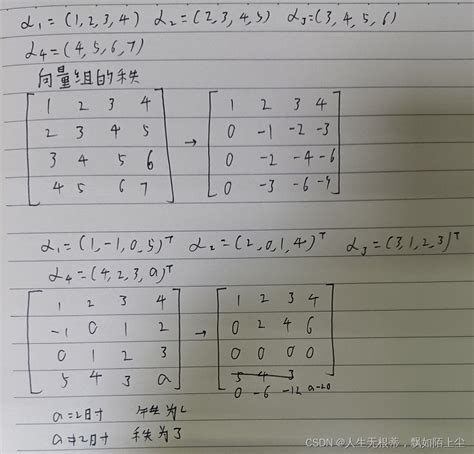 α₁=(1,2,3,4) α₂=(2,3,4,5) α₃=(3,4,5,6)
α₄=(4,5,6,7)
向量组的秩
1 2 3 4
2 3 4 5
3 4 5 6
4 5 6 7
→
1 2 3 4
0 -1 -2 -3
0 -2 -4 -6
0 -3 -6 -9
α₁=(1,-1,0,5)ᵀ α₂=(2,0,1,4)ᵀ α₃=(3,1,2,3)ᵀ
α₄=(4,2,3,a)ᵀ
1 2 3 4
-1 0 1 2
0 1 2 3
5 4 3 a
→
1 2 3 4
0 2 4 6
0 0 0 0
5 4 3
0 -6 -12 a-20
a=2时 秩为2
a≠2时 秩为3
CSDN @人生无根蒂，飘如陌上尘